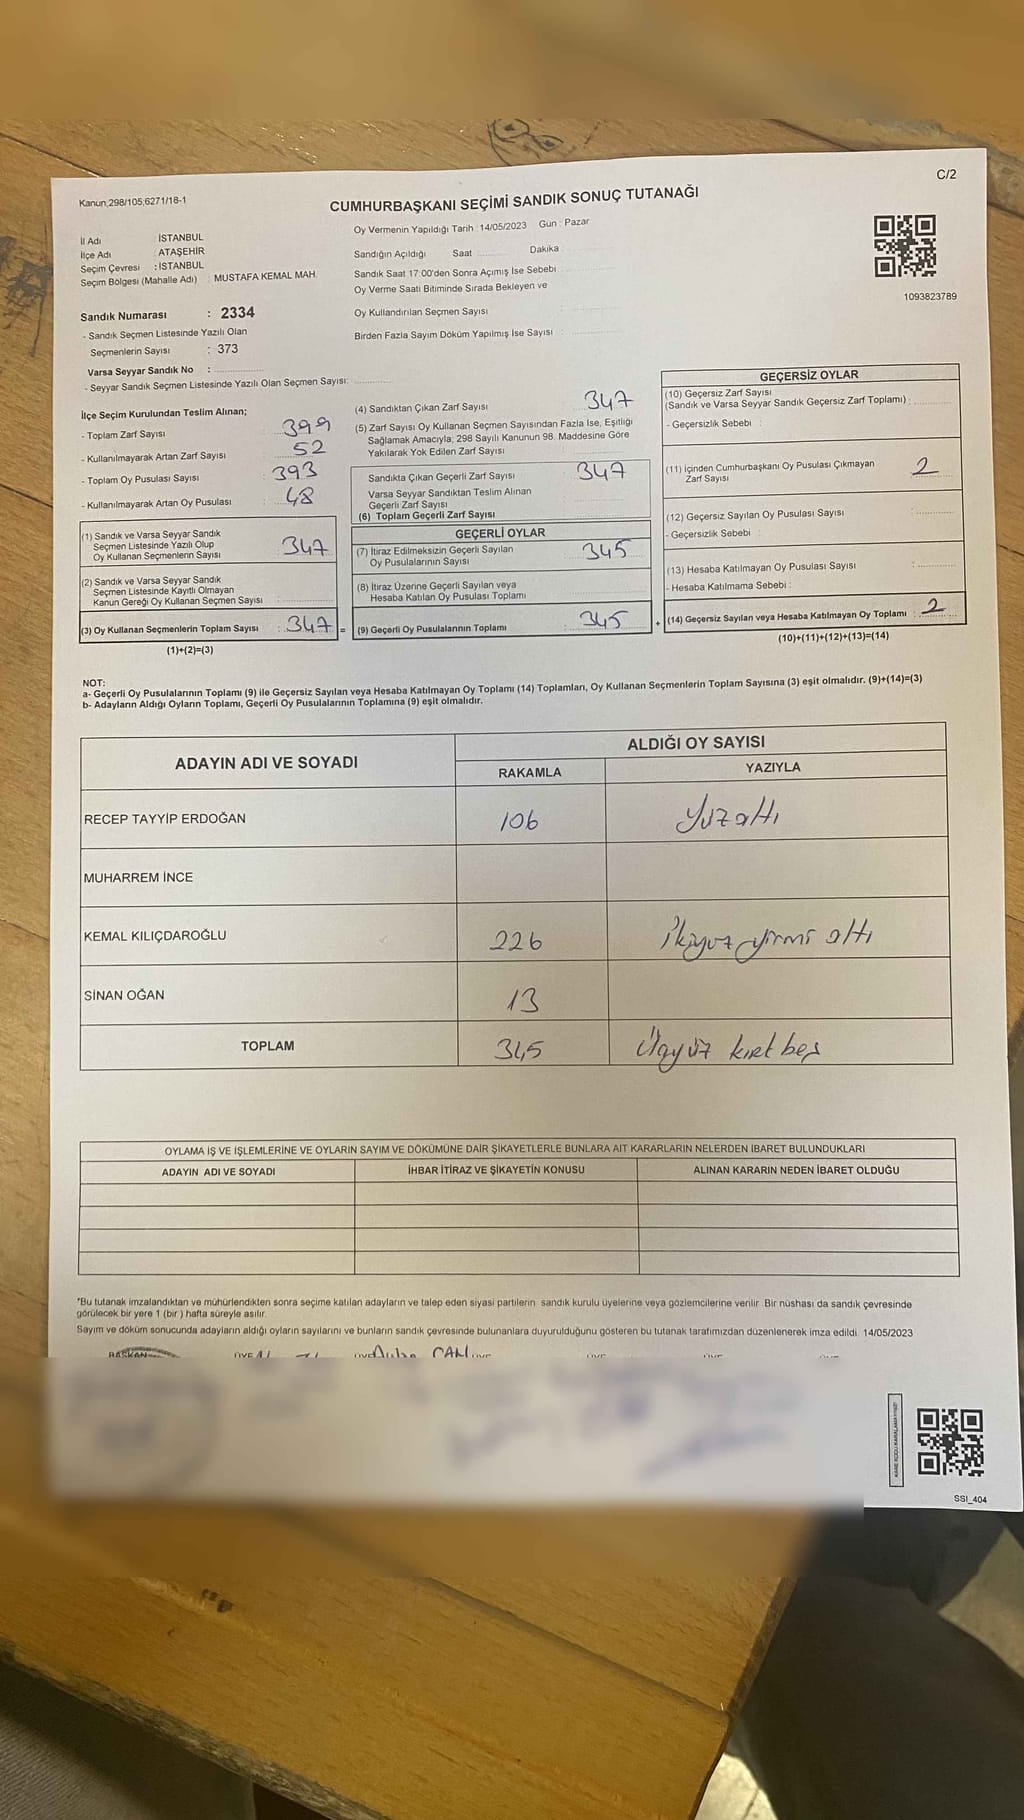 C/2
Kanun,298/105;6271/18-1
CUMHURBAŞKANI SEÇİMİ SANDIK SONUÇ TUTANAĞI
Oy Vermenin Yapıldığı Tarih :14/05/2023 Gün : Pazar
İl Adı : İSTANBUL
İlçe Adı : ATAŞEHİR
Seçim Çevresi : İSTANBUL
Seçim Bölgesi (Mahalle Adı) : MUSTAFA KEMAL MAH.
Sandığın Açıldığı Saat Dakika
Sandık Saat 17:00'den Sonra Açımış İse Sebebi
Oy Verme Saati Bitiminde Sırada Bekleyen ve
Oy Kullandırılan Seçmen Sayısı :
Birden Fazla Sayım Döküm Yapılmış İse Sayısı :
1093823789
Sandık Numarası : 2334
- Sandık Seçmen Listesinde Yazılı Olan
Seçmenlerin Sayısı : 373
Varsa Seyyar Sandık No :
- Seyyar Sandık Seçmen Listesinde Yazılı Olan Seçmen Sayısı:
İlçe Seçim Kurulundan Teslim Alınan;
- Toplam Zarf Sayısı : 399
- Kullanılmayarak Artan Zarf Sayısı : 52
- Toplam Oy Pusulası Sayısı : 393
- Kullanılmayarak Artan Oy Pusulası : 48
(1) Sandık ve Varsa Seyyar Sandık
Seçmen Listesinde Yazılı Olup
Oy Kullanan Seçmenlerin Sayısı : 347
(2) Sandık ve Varsa Seyyar Sandık
Seçmen Listesinde Kayıtlı Olmayan
Kanun Gereği Oy Kullanan Seçmen Sayısı :
(3) Oy Kullanan Seçmenlerin Toplam Sayısı : 347 =
(1)+(2)=(3)
(4) Sandıktan Çıkan Zarf Sayısı : 347
(5) Zarf Sayısı Oy Kullanan Seçmen Sayısından Fazla İse, Eşitliği
Sağlamak Amacıyla; 298 Sayılı Kanunun 98. Maddesine Göre
Yakılarak Yok Edilen Zarf Sayısı :
Sandıkta Çıkan Geçerli Zarf Sayısı : 347
Varsa Seyyar Sandıktan Teslim Alınan
Geçerli Zarf Sayısı
(6) Toplam Geçerli Zarf Sayısı
GEÇERLİ OYLAR
(7) İtiraz Edilmeksizin Geçerli Sayılan
Oy Pusulalarının Sayısı : 345
(8) İtiraz Üzerine Geçerli Sayılan veya
Hesaba Katılan Oy Pusulası Toplamı
(9) Geçerli Oy Pusulalarının Toplamı : 345 +
GEÇERSİZ OYLAR
(10) Geçersiz Zarf Sayısı
(Sandık ve Varsa Seyyar Sandık Geçersiz Zarf Toplamı) :
- Geçersizlik Sebebi :
(11) İçinden Cumhurbaşkanı Oy Pusulası Çıkmayan
Zarf Sayısı 2
(12) Geçersiz Sayılan Oy Pusulası Sayısı :
- Geçersizlik Sebebi :
(13) Hesaba Katılmayan Oy Pusulası Sayısı :
- Hesaba Katılmama Sebebi :
(14) Geçersiz Sayılan veya Hesaba Katılmayan Oy Toplamı : 2
(10)+(11)+(12)+(13)=(14)
NOT:
a- Geçerli Oy Pusulalarının Toplamı (9) ile Geçersiz Sayılan veya Hesaba Katılmayan Oy Toplamı (14) Toplamları, Oy Kullanan Seçmenlerin Toplam Sayısına (3) eşit olmalıdır. (9)+(14)=(3)
b- Adayların Aldığı Oyların Toplamı, Geçerli Oy Pusulalarının Toplamına (9) eşit olmalıdır.
ADAYIN ADI VE SOYADI ALDIĞI OY SAYISI
RAKAMLA YAZIYLA
RECEP TAYYİP ERDOĞAN 106 Yüzaltı
MUHARREM İNCE
KEMAL KILIÇDAROĞLU 226 İkiyüz yirmi altı
SİNAN OĞAN 13
TOPLAM 345 Üçyüz kırk beş
OYLAMA İŞ VE İŞLEMLERİNE VE OYLARIN SAYIM VE DÖKÜMÜNE DAİR ŞİKAYETLERLE BUNLARA AİT KARARLARIN NELERDEN İBARET BULUNDUKLARI
ADAYIN ADI VE SOYADI İHBAR İTİRAZ VE ŞİKAYETİN KONUSU ALINAN KARARIN NEDEN İBARET OLDUĞU
*Bu tutanak imzalandıktan ve mühürlendikten sonra seçime katılan adayların ve talep eden siyasi partilerin sandık kurulu üyelerine veya gözlemcilerine verilir. Bir nüshası da sandık çevresinde
görülecek bir yere 1 (bir ) hafta süreyle asılır.
Sayım ve döküm sonucunda adayların aldığı oyların sayılarını ve bunların sandık çevresinde bulunanlara duyurulduğunu gösteren bu tutanak tarafımızdan düzenlenerek imza edildi. 14/05/2023
BAŞKAN
SSI_404